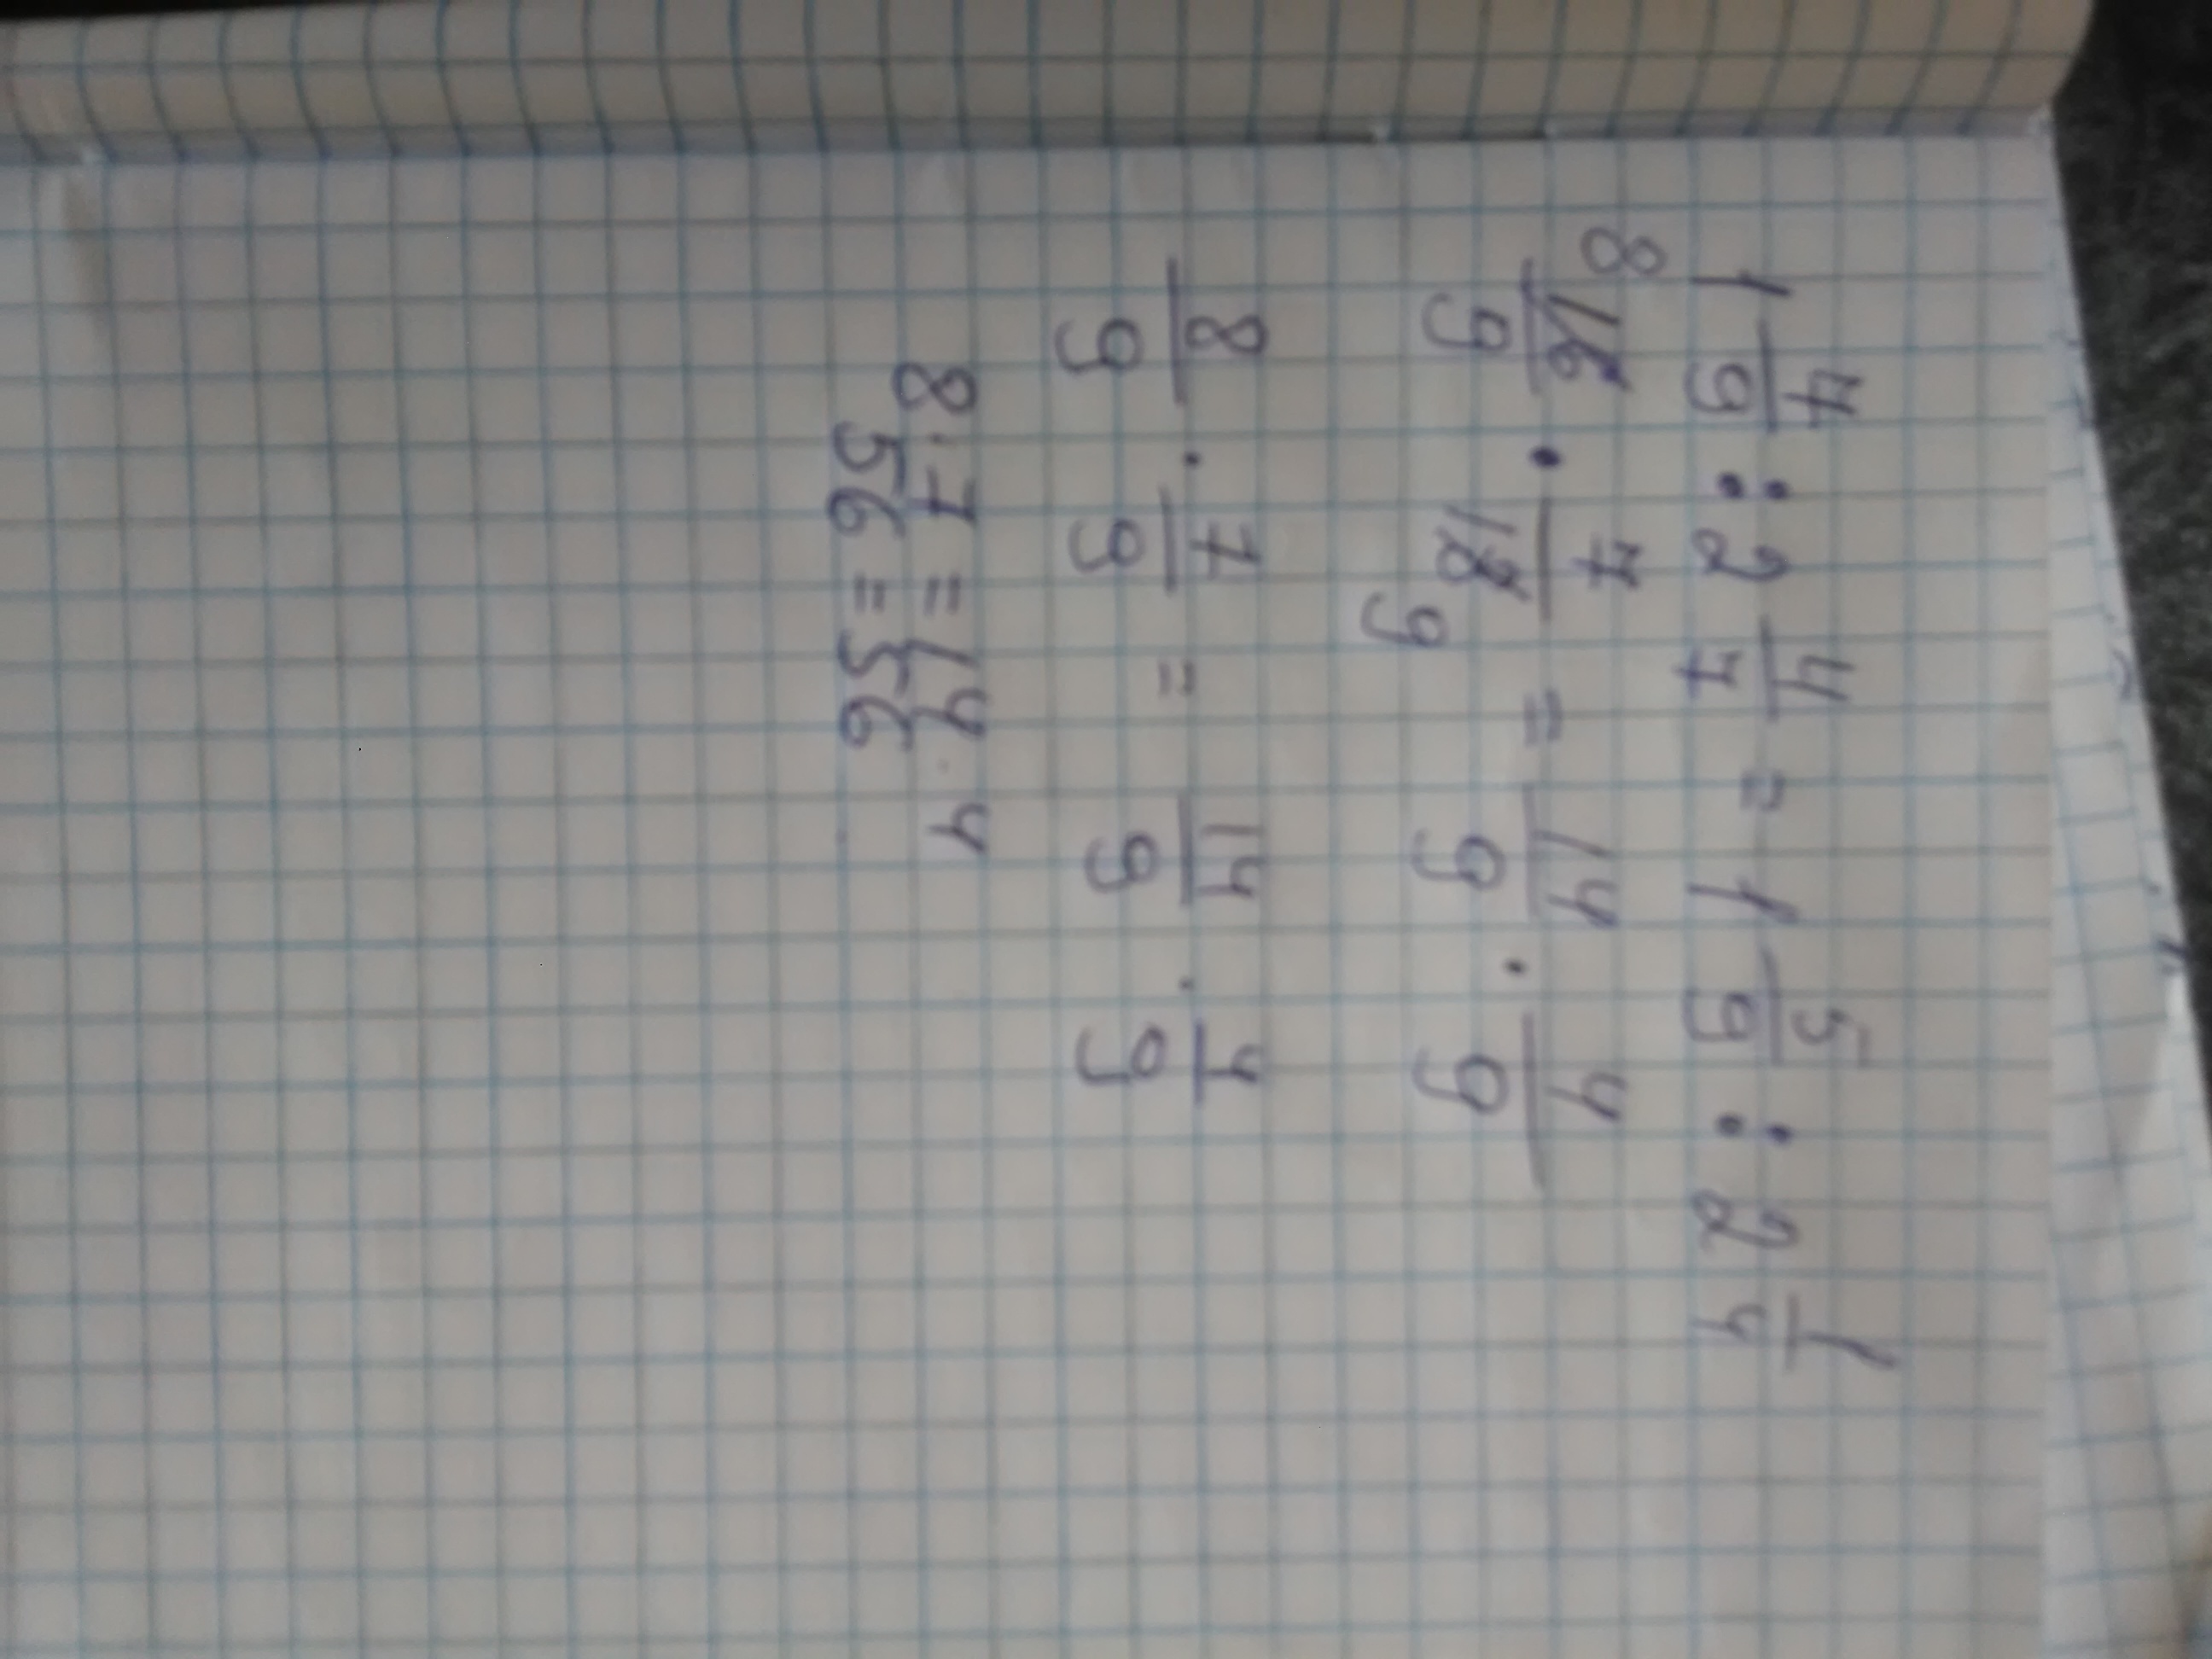 1 7/9 : 2 4/7 = 1 5/9 : 2 1/4
8 16/9 · 7/18 9 = 14/9 · 4/9
8/9 · 7/9 = 14/9 · 4/9
8 · 7 = 14 · 4
56 = 56